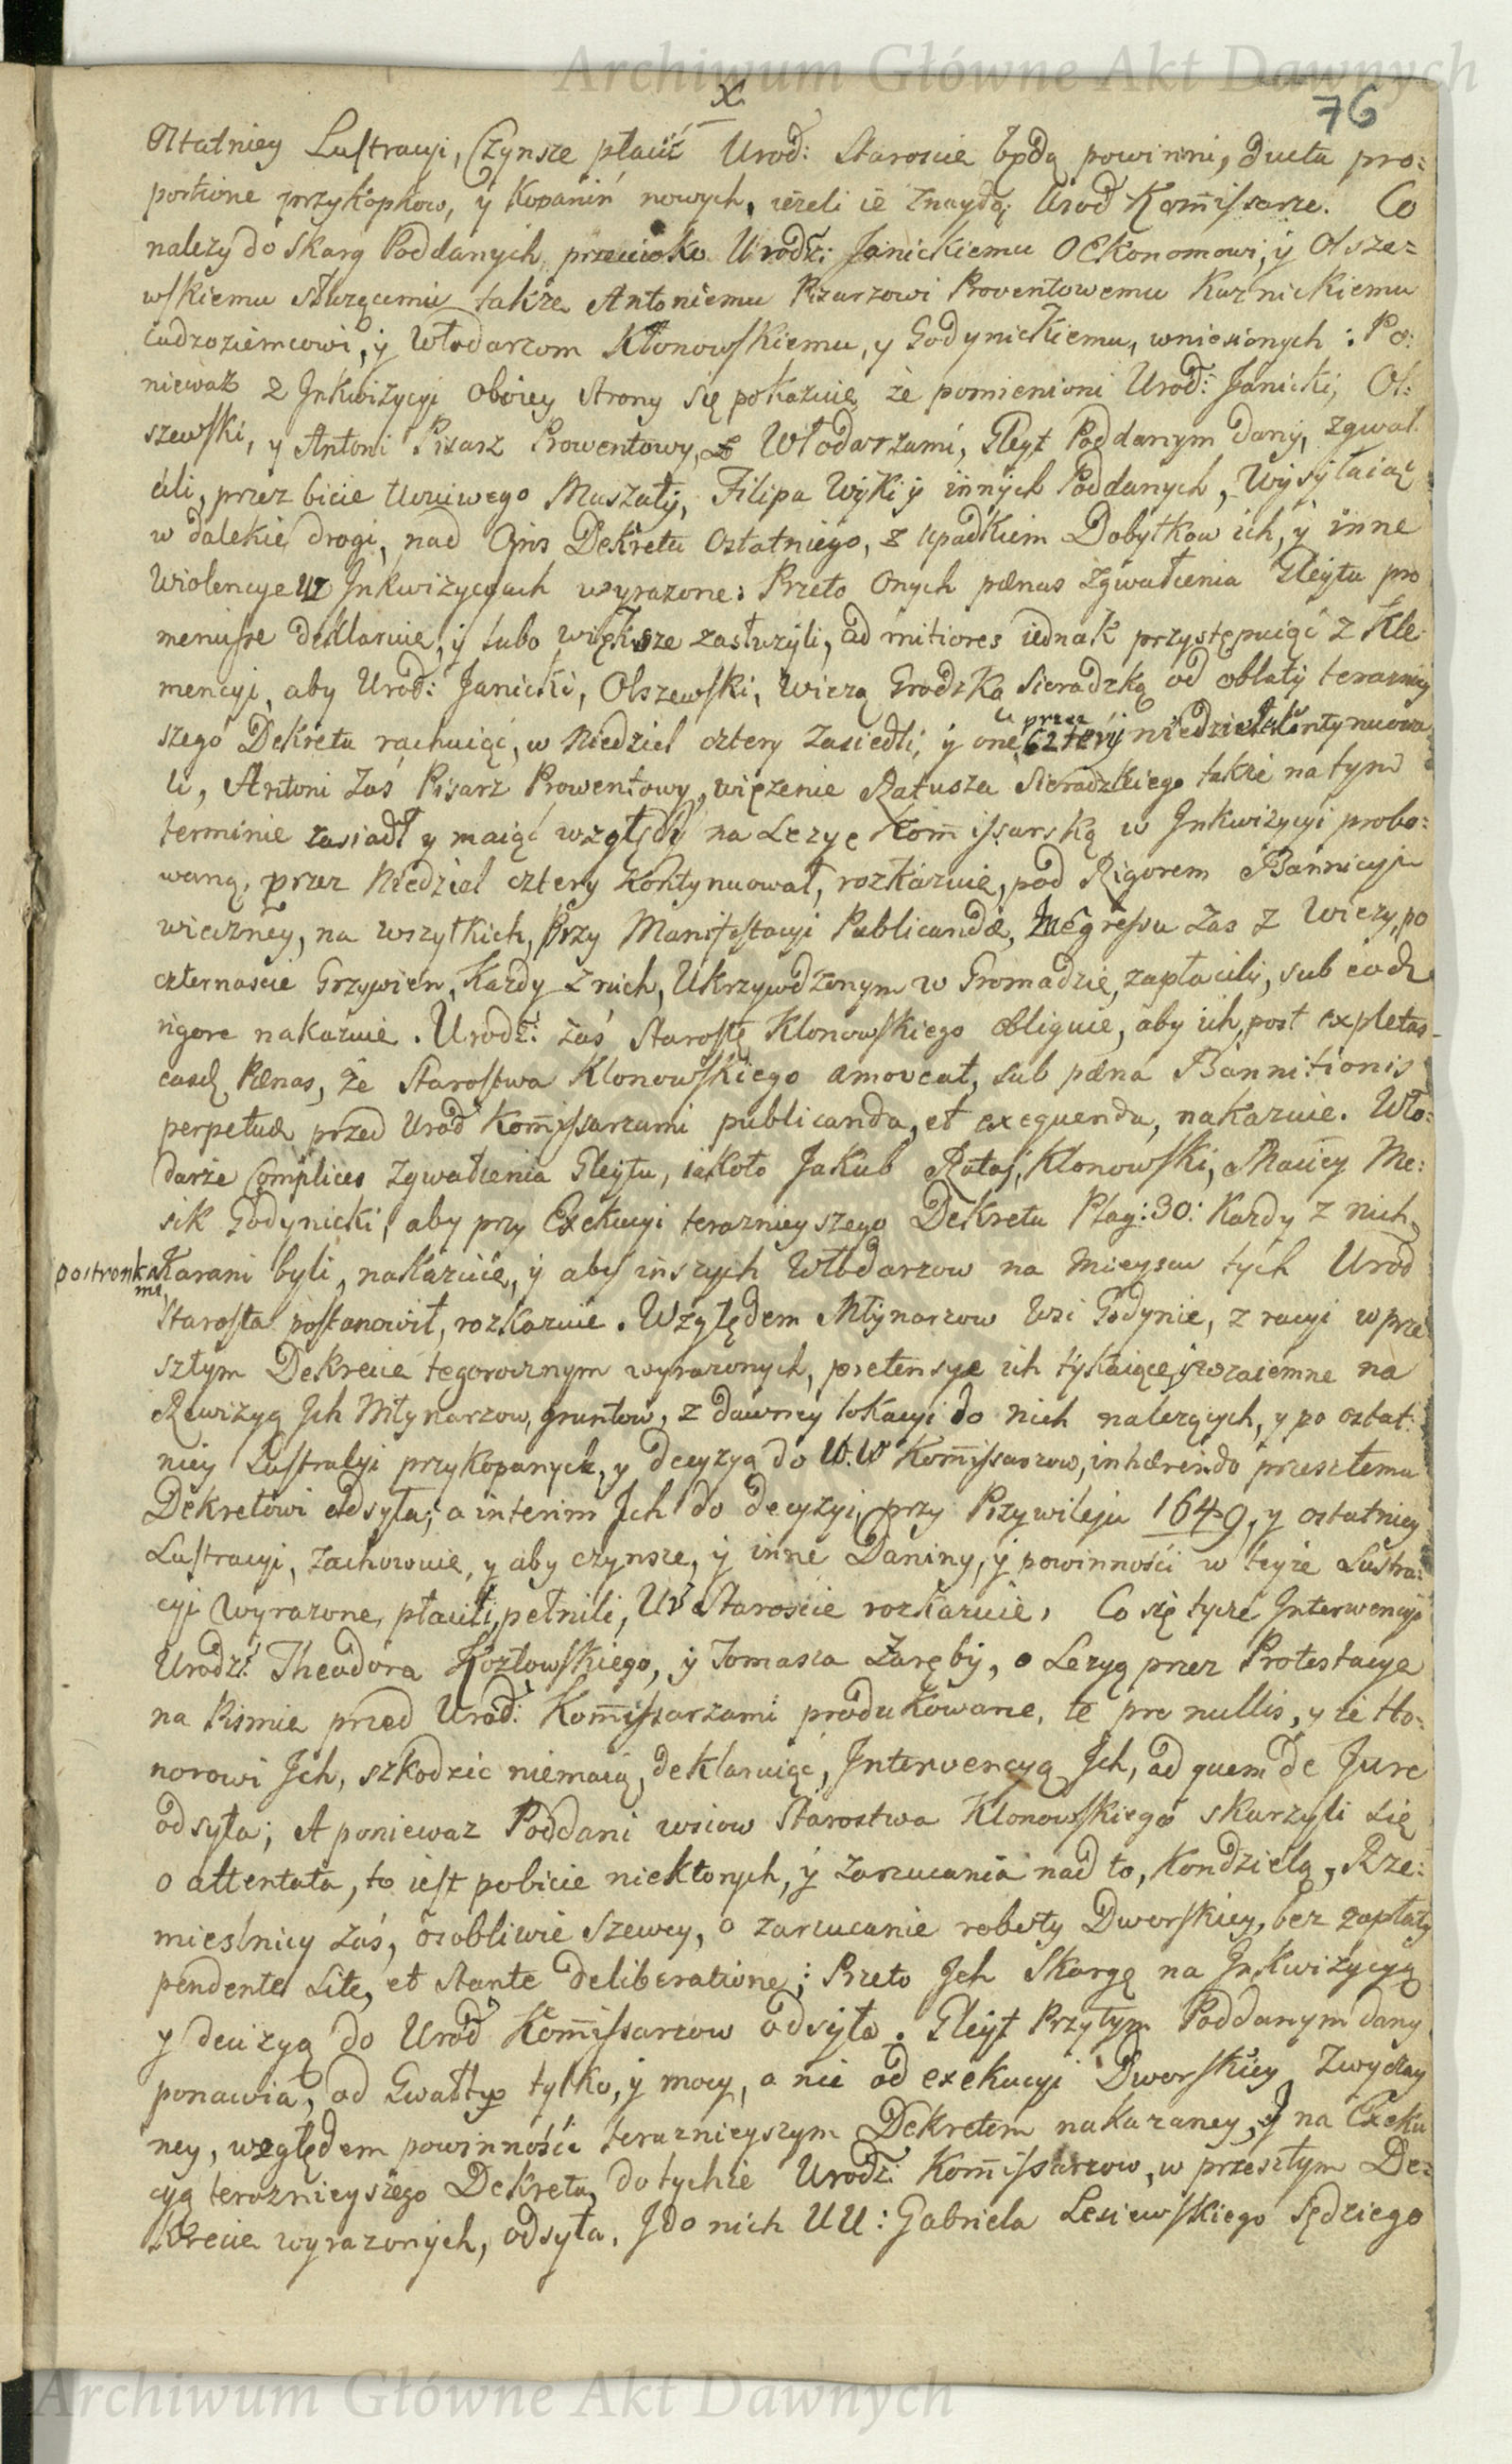 Archiwum Główne Akt Dawnych
X
76
Ostatniey Lustracyi, Czynsze płacić Urod: Staroscie będą powinni, ducta pro:
portione przykopkow, y Kopanin nowych, ieżeli ie znaydą Urod Kom̅issarze. Co
należy do Skarg Poddanych przeciwko Urodz: Janickiemu OEkonomowi, y Olsze=
wskiemu służącemu także Antoniemu Pisarzowi Proventowemu Kuznickiemu
cudzoziemcowi, y Włodarzom Kłonowskiemu, y Godynickiemu, wniesionych: Po:
nieważ z Inkwizycyi oboiey strony się pokazuie, że pomienioni Urod: Janicki, Ol:
szewski, y Antoni Pisarz Prowentowy, z Włodarzami, Gleyt Poddanym dany, zgwał
cili, przez bicie Uczciwego Muszały, Filipa Wyki y innych Poddanych, Wysyłaiąc
w dalekie drogi, nad Opis Dekretu Ostatniego, z upadkiem Dobytkow ich, y inne
Wiolencye w Inkwizycyach wyrażone: Przeto Onych pœnas zgwałcenia Gleytu pro
meruisse deklaruie, y lubo większe zasłużyli, ad mitiores iednak przystępuiąc z Kle
mencyi, aby Urod: Janicki, Olszewski, wieżą Grodzką Sieradzką od oblaty terazniey
szego Dekretu rachuiąc, w Niedziel cztery zasiedli, y one przez cztery niedziele kontynuowa
li, Antoni zaś Pisarz Prowentowy, więzenie Ratusza Sieradzkiego także na tym
terminie zasiadł y maiąc wzgłąd na Lezyę Kom̅issarską w Inkwizycyi probo:
waną, przez Niedziel cztery kontynuował, rozkazuie, pod Rigorem Bannicyi
wieczney, na wszytkich, przy Manifestacyi Publicandæ, Inegressu zas z Wieży, po
czternascie Grzywien, Każdy z nich, Ukrzywdzonym w Gromadzie, zapłacili, sub eodem
rigore nakazuie. Urodz: zaś Starostę Klonowskiego obliguie, aby ich, post expletas
easdem Pœnas, ze Starostwa Klonowskiego amoveat, sub pœna Bannitionis
perpetuæ przed Urod Kom̅issarzami publicanda, et exequenda, nakazuie. Wło:
darze Complices zgwałcenia Gleytu, iakoto Jakub Rataj, Klonowski, Maciey Me:
sik Godynicki, aby przy Exekucyi teraznieyszego Dekretu Plag: 30: Każdy z nich
postronkami Karani byli, nakazuie, y aby inszych Włodarzow na mieysce tych Urod
Starosta postanowił, rozkazuie. Względem Młynarzow Wsi Godynie, z racyi w prze
szłym Dekrecie tegorocznym wyrażonych, pretensye ich tykaiące y wzaiemne na
Rewizyą Ich Młynarzow, gruntow, z dawney lokacyi do nich należących, y po ostat:
niey Lustracyi przykopanych, y decyzyą do W.W Kom̅issarzow, inhærendo przeszłemu
Dekretowi odsyła; a interim Ich do decyzyi, przy Przywileju 1649, y ostatniey
Lustracyi, zachowuie, y aby czynsze, y inne Daniny, y powinności w teyże Lustra:
cyi wyrażone, płacili, pełnili, Ur Staroscie rozkazuie. Co się tycze Interwencyi
Urodz: Theodora Kozłowskiego, y Tomasza Zaręby, o Lezyą przez Protestacye
na Pismie przed Urod: Kom̅issarzami produkowane, te pro nullis, y że Ho:
norowi Ich, szkodzić niemaią, deklaruiąc, Interwencyą Ich, ad quem de Jure
odsyła; A ponieważ Poddani wsiow Starostwa Klonowskiego skarzyli się
o attentata, to iest pobicie niektorych, y zarzucania nad to, Kondzielą, Rze:
mieslnicy zaś, osobliwie Szewcy, o zarzucanie roboty Dworskiey, bez zapłaty
pendente Lite, et stante deliberatione; Przeto Ich Skargę na Inkwizycyą
y decizyą do Urod Kom̅issarzow odsyła. Gleyt Przytym Poddanym dany
ponawia, od Gwałtu tylko, y mocy, a nie od exekucyi Dworskiey Zwyczay
ney, względem powinności teraznieyszym Dekretem nakazaney, y na Exeku
cyą teraznieyszego Dekretu, do tychże Urodz: Kom̅issarzow, w przeszłym De:
krecie wyrażonych, odsyła. I do nich UU: Gabriela Lesiewskiego Sędziego
Archiwum Główne Akt Dawnych